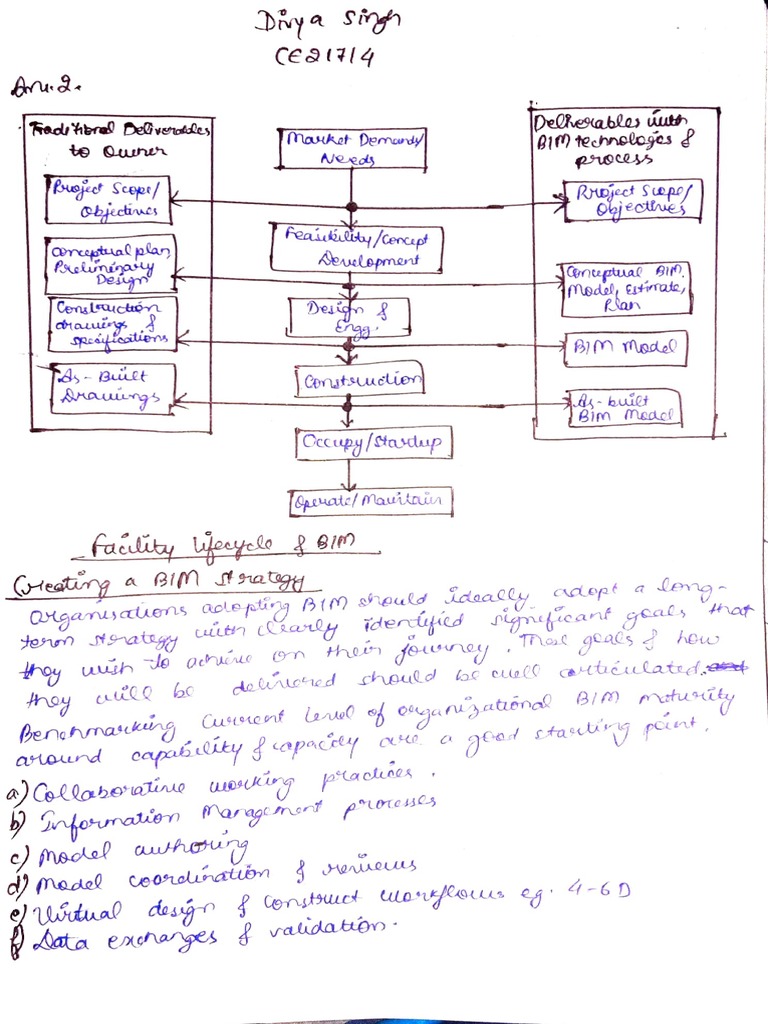 Divya Singh
CE21714
Ans.2.
Traditional Deliverables
to Owner
Project Scope/
Objectives
Conceptual plan,
Preliminary
Design
Construction
drawings &
specifications
As-Built
Drawings
Market Demands/
Needs
Feasibility/Concept
Development
Design &
Engg.
Construction
Occupy/Startup
Operate/Maintain
Deliverables with
BIM technologies &
process
Project Scope/
Objectives
Conceptual BIM
Model, Estimate,
Plan
BIM Model
As-built
BIM Model
Facility Lifecycle & BIM
Creating a BIM strategy
Organisations adopting BIM should ideally adopt a long-
term strategy with clearly identified significant goals that
they wish to achieve on their journey. These goals & how
they will be delivered should be well articulated.
Benchmarking current level of organizational BIM maturity
around capability & capacity are a good starting point.
a) Collaborative working practices.
b) Information Management processes
c) Model authoring
d) Model coordination & reviews
e) Virtual design & construct workflows eg. 4-6D
f) Data exchanges & validation.